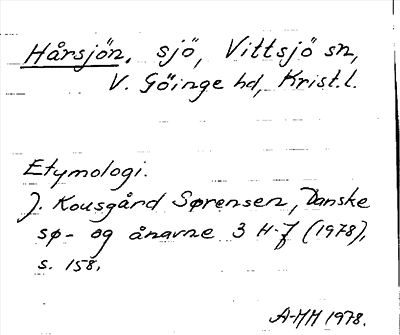 Hårsjön, sjö, Vittsjö sn,
V. Göinge hd, Krist.l.
Etymologi.
J. Kousgård Sørensen, Danske
sø- og ånavne 3 H-J (1978),
s. 158.
A-MH 1978.